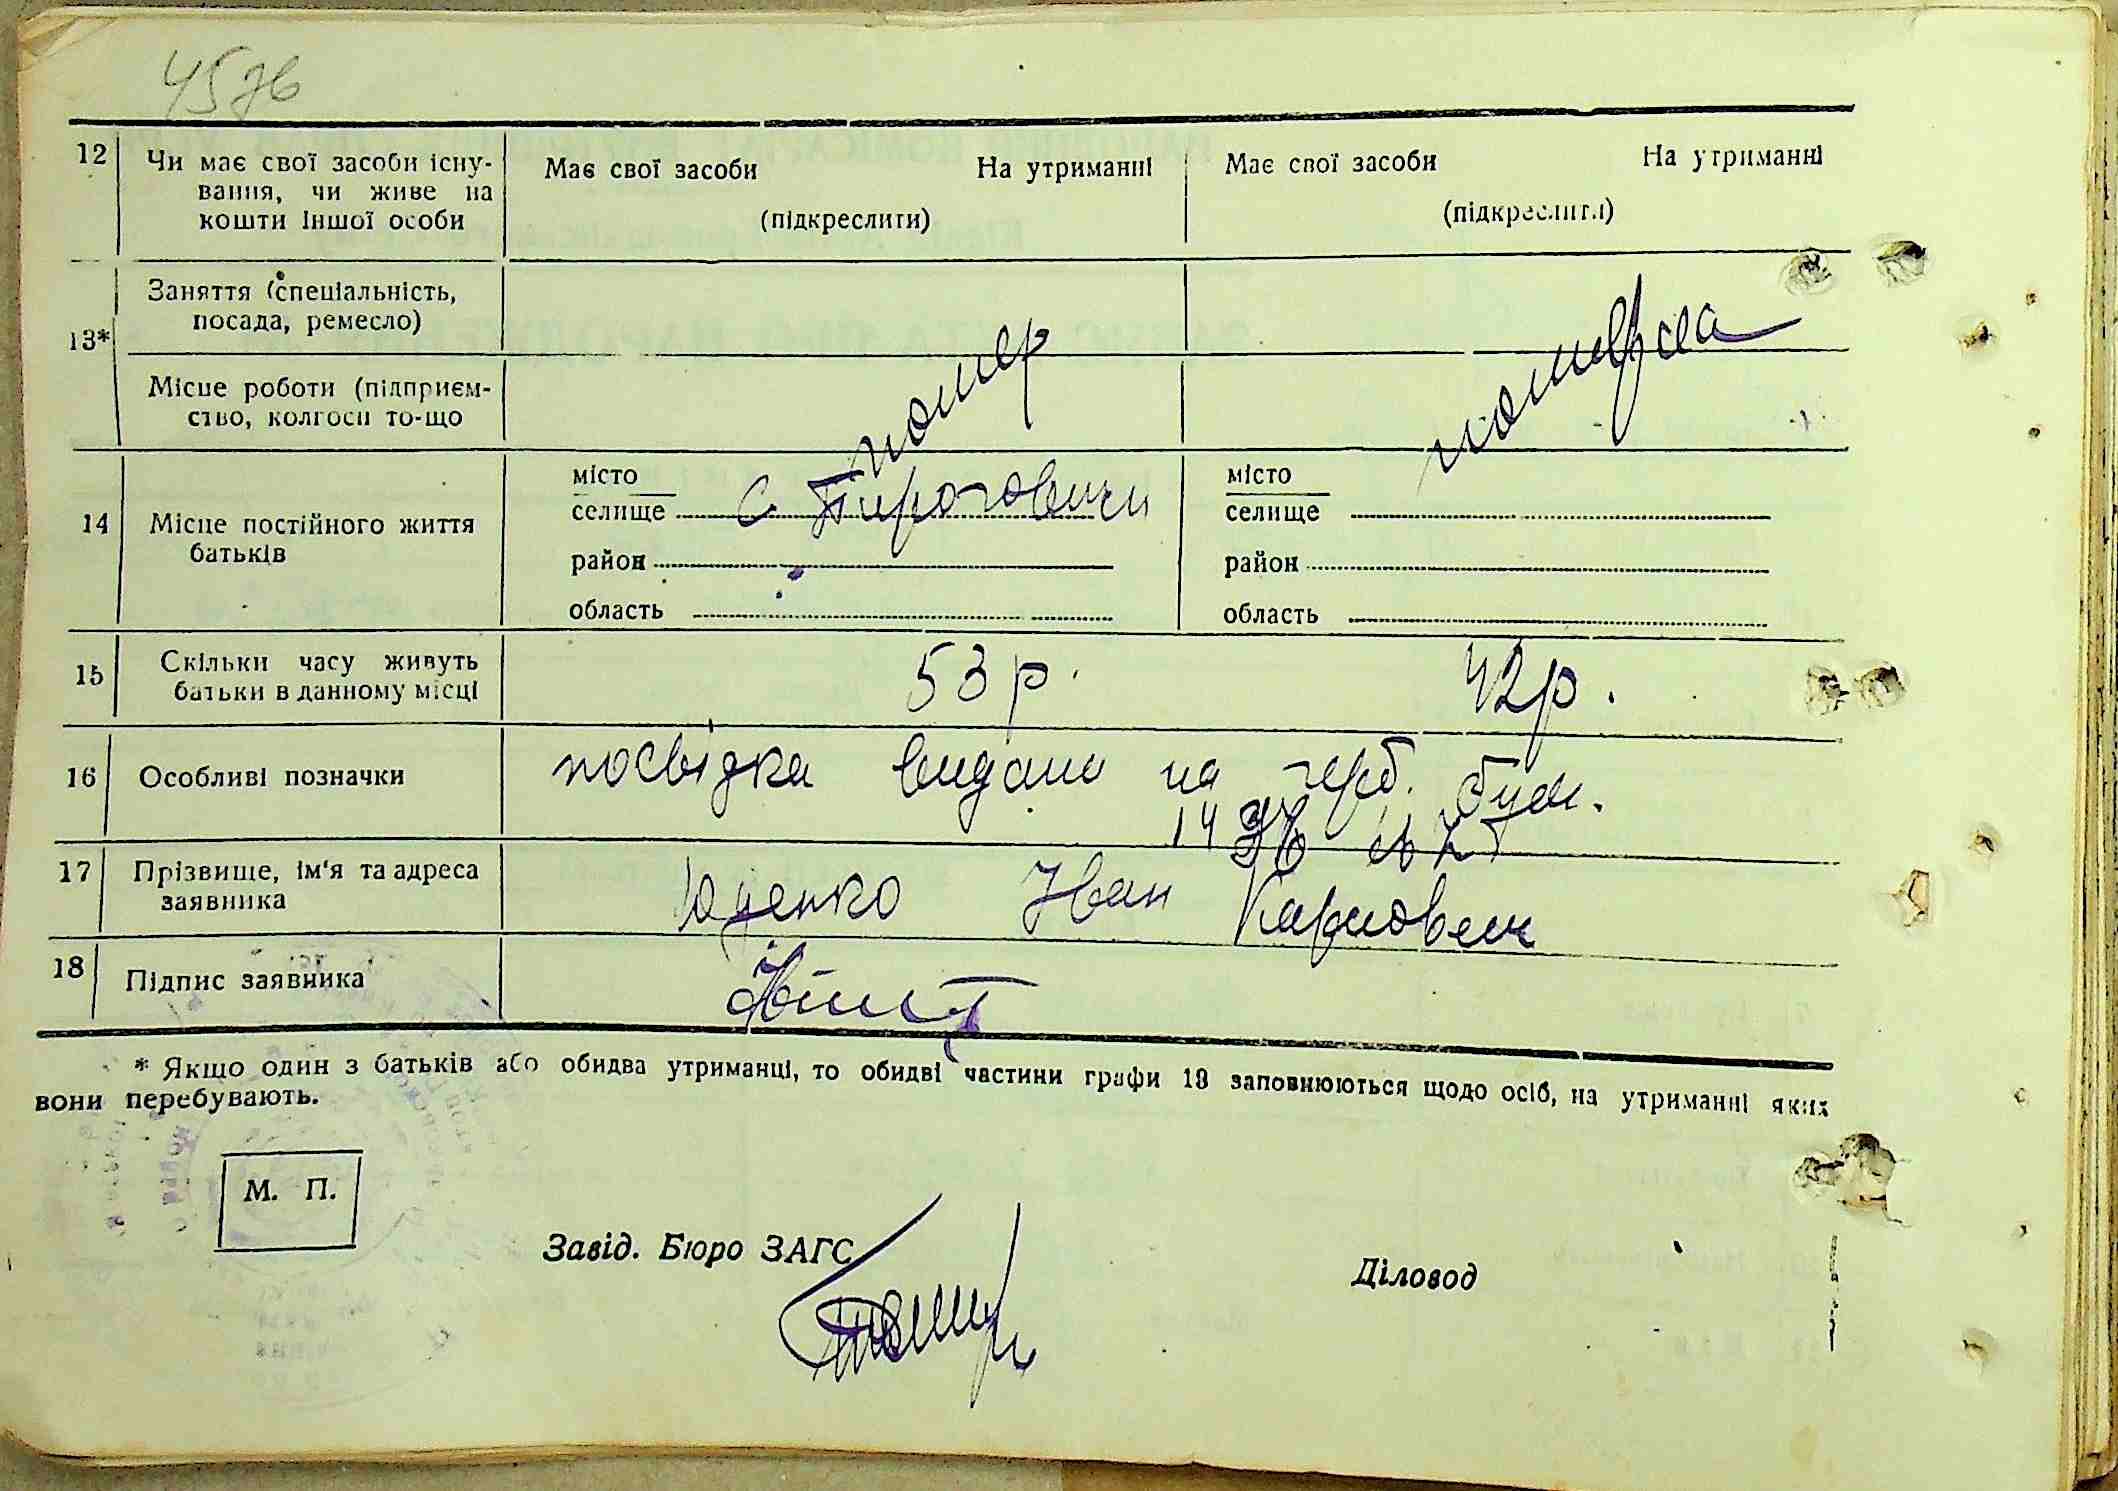 457б
12 Чи має свої засоби існу-
вання, чи живе на
кошти іншої особи
Має свої засоби На утриманні
(підкреслити)
Має свої засоби На утриманні
(підкреслити)
13*
Заняття (спеціальність,
посада, ремесло)
Місце роботи (підприєм-
ство, колгосп то-що
помер
померла
14 Місце постійного життя
батьків
місто
селище с. Пироговичи
район
область
місто
селище
район
область
15 Скільки часу живуть
батьки в данному місці
53 р.
42 р.
16 Особливі позначки
посвідка видана на герб. бум.
17 Прізвище, ім'я та адреса
заявника
Юценко Иван Карпович
18 Підпис заявника
* Якщо один з батьків або обидва утриманці, то обидві частини графи 18 заповнюються щодо осіб, на утриманні яких
вони перебувають.
М. П.
Завід. Бюро ЗАГС
Діловод